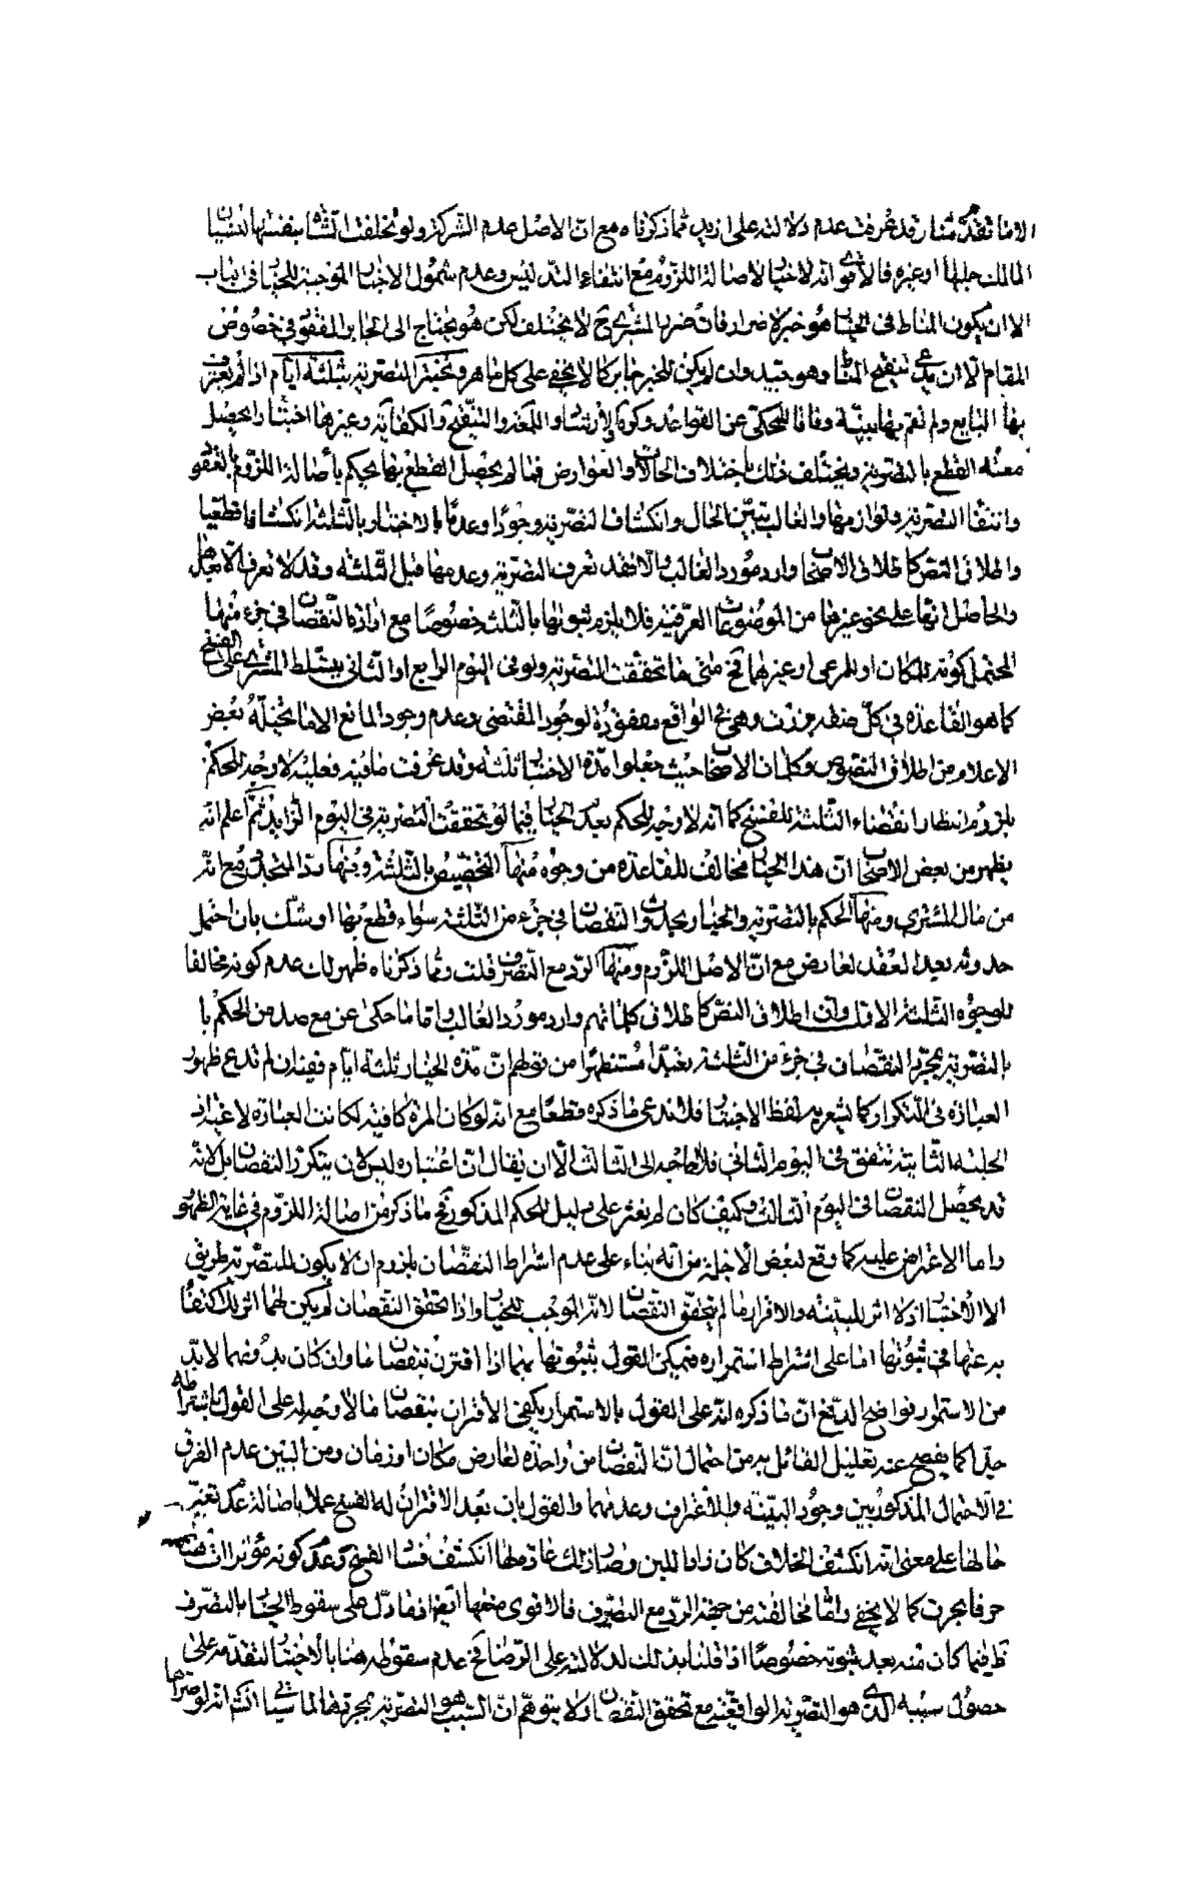 الا ما تقدم منا وقد عرفت عدم دلالته على ازيد مما ذكرناه مع ان الاصل عدم الشركة ولو تخلفت الشاة بنفسها لنسيان
المالك حلبها او غيره فالاقوى انه لا خيار لاصالة اللزوم مع انتفاء التدليس وعدم شمول الاخبار الموجبة للخيار في الباب
الا ان يكون المناط في الخيار هو خبر لا ضرار فان ضرر المشتري ح لا يختلف لكن هو يحتاج الى الجابر المفقود في خصوص
المقام الا ان يدعى تنقيح المناط وهو بعيد وان لم يكن للخبر جابر كما لا يخفى على كل ماهر وتختبر التصرية بثلثة ايام اذا لم يعترف
بها البايع ولم تقم بها بينة وفاقا للمحكي عن القواعد وكرة والارشاد واللمعة والتنقيح والكفاية وغيرها اختبارا يحصل
معه القطع بالتصرية ويختلف ذلك باختلاف الحالات والعوارض فما لم يحصل القطع بها يحكم باصالة اللزوم بالعقود
وانتفا التصرية ولوازمها والغالب تبين الحال وانكشاف التصرية وجودا وعدما بالاختبار بالثلثة انكشافا قطعيا
واطلاق النص كاطلاق الاصحاب وارد مورد الغالب والا فقد تعرف التصرية وعدمها قبل الثلثة وقد لا تعرف الا بعدها
والحاصل انها على نحو غيرها من الموضوعات العرفية فلا يلزم ثبوتها بالثلث خصوصا مع ارادة النقصان في جزء منها
المحتمل كونه للمكان او المرعى او غيرهما فح متى ما تحققت التصرية ولو في اليوم الرابع او الثاني يتسلط المشتري على الفسخ
كما هو القاعدة في كل صفة وزنت وهي في الواقع مفقودة لوجود المقتضي وعدم وجود المانع الا ما يخيله بعض
الاعلام من اطلاق النصوص وكلمات الاصحاب حيث جعلوا مدة الاختبار ثلثة وقد عرفت ما فيه فعليه لا وجه للحكم
بلزوم انتظار انقضاء الثلثة للفسخ كما انه لا وجه للحكم بعدم الخيار فيما لو تحققت التصرية في اليوم الزايد ثم اعلم انه
يظهر من بعض الاصحاب ان هذا الخيار مخالف للقاعدة من وجوه منها التخصيص بالثلثة ومنها رد المتجدد مع انه
من مال المشتري ومنها الحكم بالتصرية والخيار بحدوث النقصان في جزء من الثلثة سواء قطع بها او شك بان احتمل
حدوثه بعد العقد لعارض مع ان الاصل اللزوم ومنها الرد مع التصرف قلت ومما ذكرناه ظهر لك عدم كونه مخالفا
للوجوه الثلثة الاول وان اطلاق النص كاطلاق كلماتهم وارد مورد الغالب واما ما حكى عن مع صد من الحكم با
بالتصرية بمجرد النقصان في جزء من الثلثة بعيد مستظهرا من قولهم ان مدة الخيار ثلثة ايام ففيه ان لم ندع ظهور
العبارة في التكرار كما يشعر به لفظ الاختبار فلا ندعى ما ذكره قطعا مع انه لو كان المرة كافية لكانت العبارة لاغية اذ
الحلبة الثانية تتفق في اليوم الثاني فلا حاجة الى الثالث الا ان يقال ان اعتباره ليس لان يتكرر النقصان بل لانه
قد يحصل النقصان في اليوم الثالث وكيف كان لم نعثر على دليل للحكم المذكور فح ما ذكر من اصالة اللزوم في غاية الظهور
واما الاعتراض عليه كما وقع لبعض الاجلة من انه بناء على عدم اشتراط النقصان يلزم ان لا يكون للتصرية طريق
الا الاختبار اذ لا اثر للبينة والاقرار ما لم يتحقق النقصان لانه الموجب للخيار واذا تحقق النقصان لم يكن لهما اثر بل كفى
به عنها في ثبوتها اما على اشتراط استمراره فيمكن القول بثبوتها بهما اذا اقترن بنقصان ما وان كان بدونهما لا بد
من الاستمرار فواضح الدفع ان ما ذكره انه على القول بالاستمرار يكفي الاقتران بنقصان ما لا وجه له على القول باشتراطه
جدا كما يفصح عنه تعليل القائل به من احتمال ان النقصان مرة واحدة لعارض مكان او زمان ومن البين عدم الفرق
في الاحتمال المذكور بين وجود البينة والاعتراف وعدمهما والقول بان بعد الاقتران له الفسخ عملا باصالة عدم تغير
حالها على معنى انه انكشف الخلاف كان زاد اللبن وصار ذلك عادة لها انكشف فساد الفسخ وعدم كونه مؤثرا
جزفا بجرت كما لا يخفى واما مخالفته من جهة الرد مع التصرف فالاقوى منعها ايضا اذ ما دل على سقوط الخيار بالتصرف
ظ فيما كان منه بعد ثبوته خصوصا اذا قلنا بذلك لدلالته على الرضا فح عدم سقوطه هنا بالاختبار لتقدمه على
حصول سببه الذي هو التصرية الواقعية مع تحقق النقصان ولا يتوهم ان السبب هو التصرية بمجردها لما سيأتي انشـ انه لو صراها